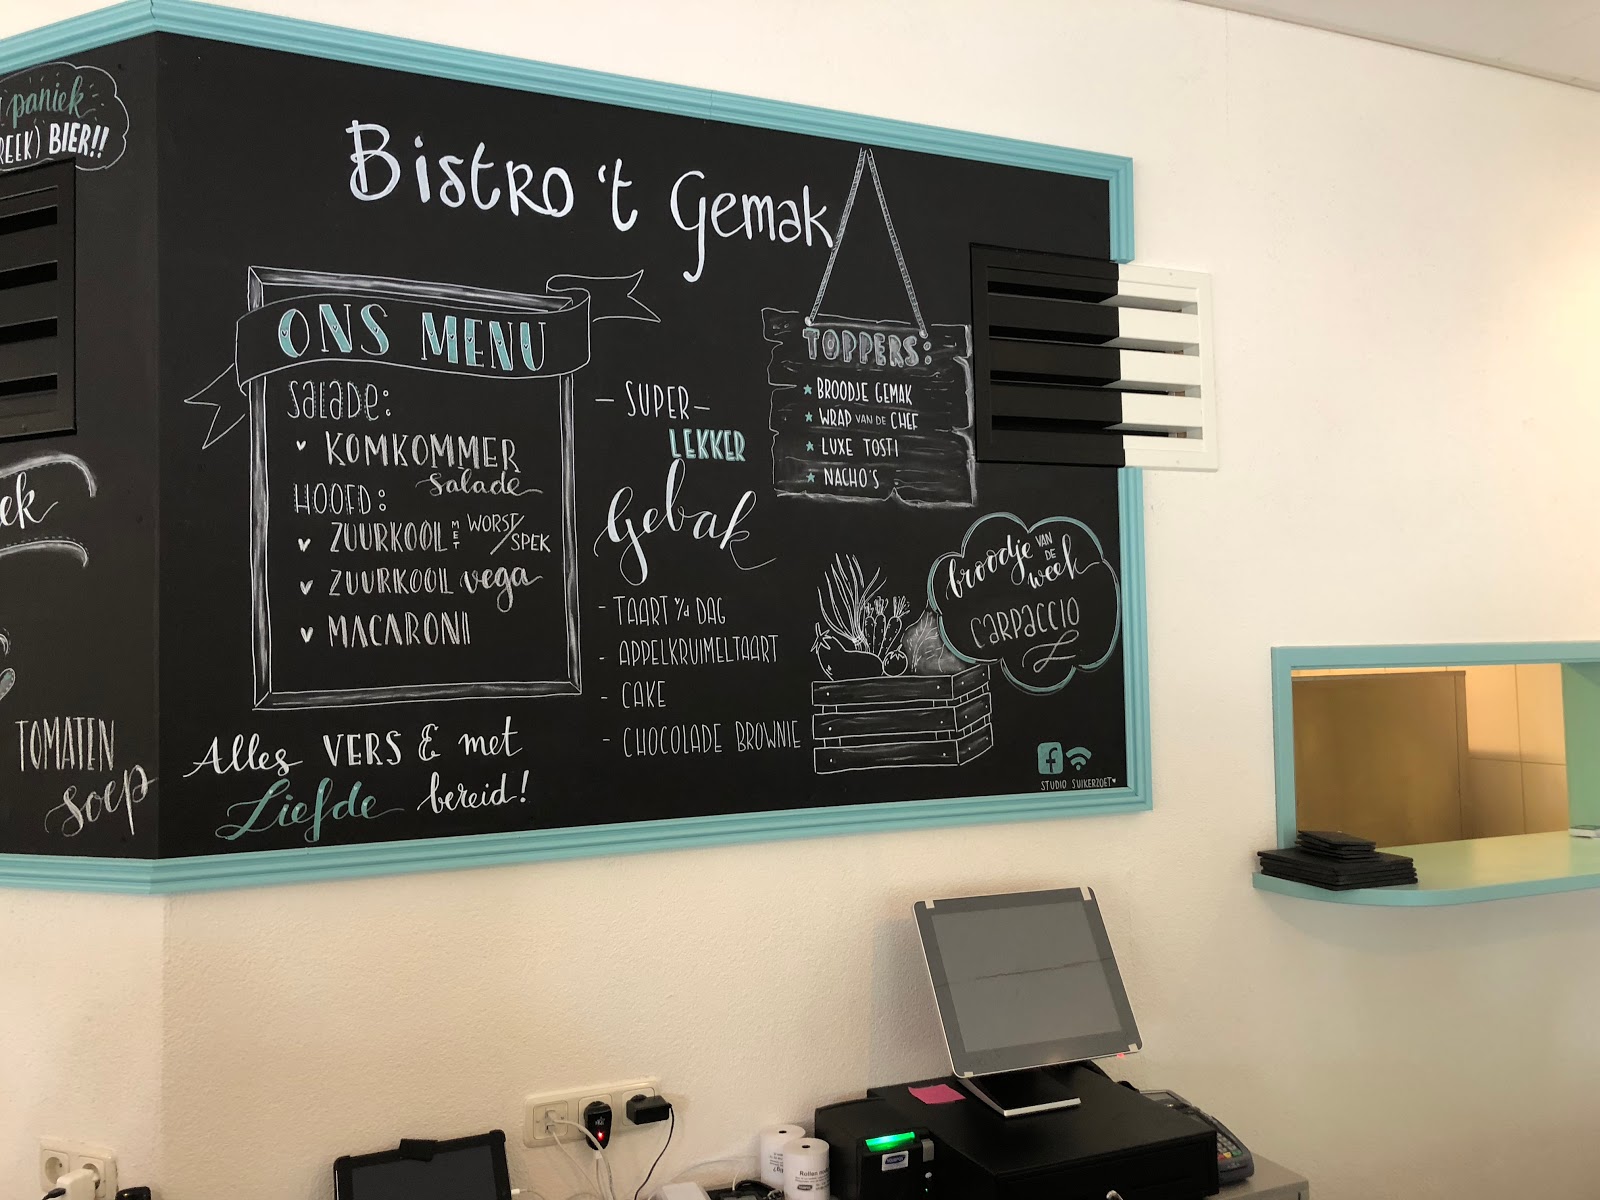 paniek
BIER!!
TOMATEN
soep
Bistro 't Gemak
ONS MENU
Salade:
KOMKOMMER
salade
HOOFD:
ZUURKOOL MET WORST/
SPEK
ZUURKOOL vega
MACARONI
Alles VERS & met
Liefde bereid!
- SUPER -
LEKKER
Gebak
- TAART v/d DAG
- APPELKRUIMELTAART
- CAKE
- CHOCOLADE BROWNIE
TOPPERS:
BROODJE GEMAK
WRAP VAN DE CHEF
LUXE TOSTI
NACHO'S
broodje VAN
DE
week
CARPACCIO
f
STUDIO SUIKERZOET